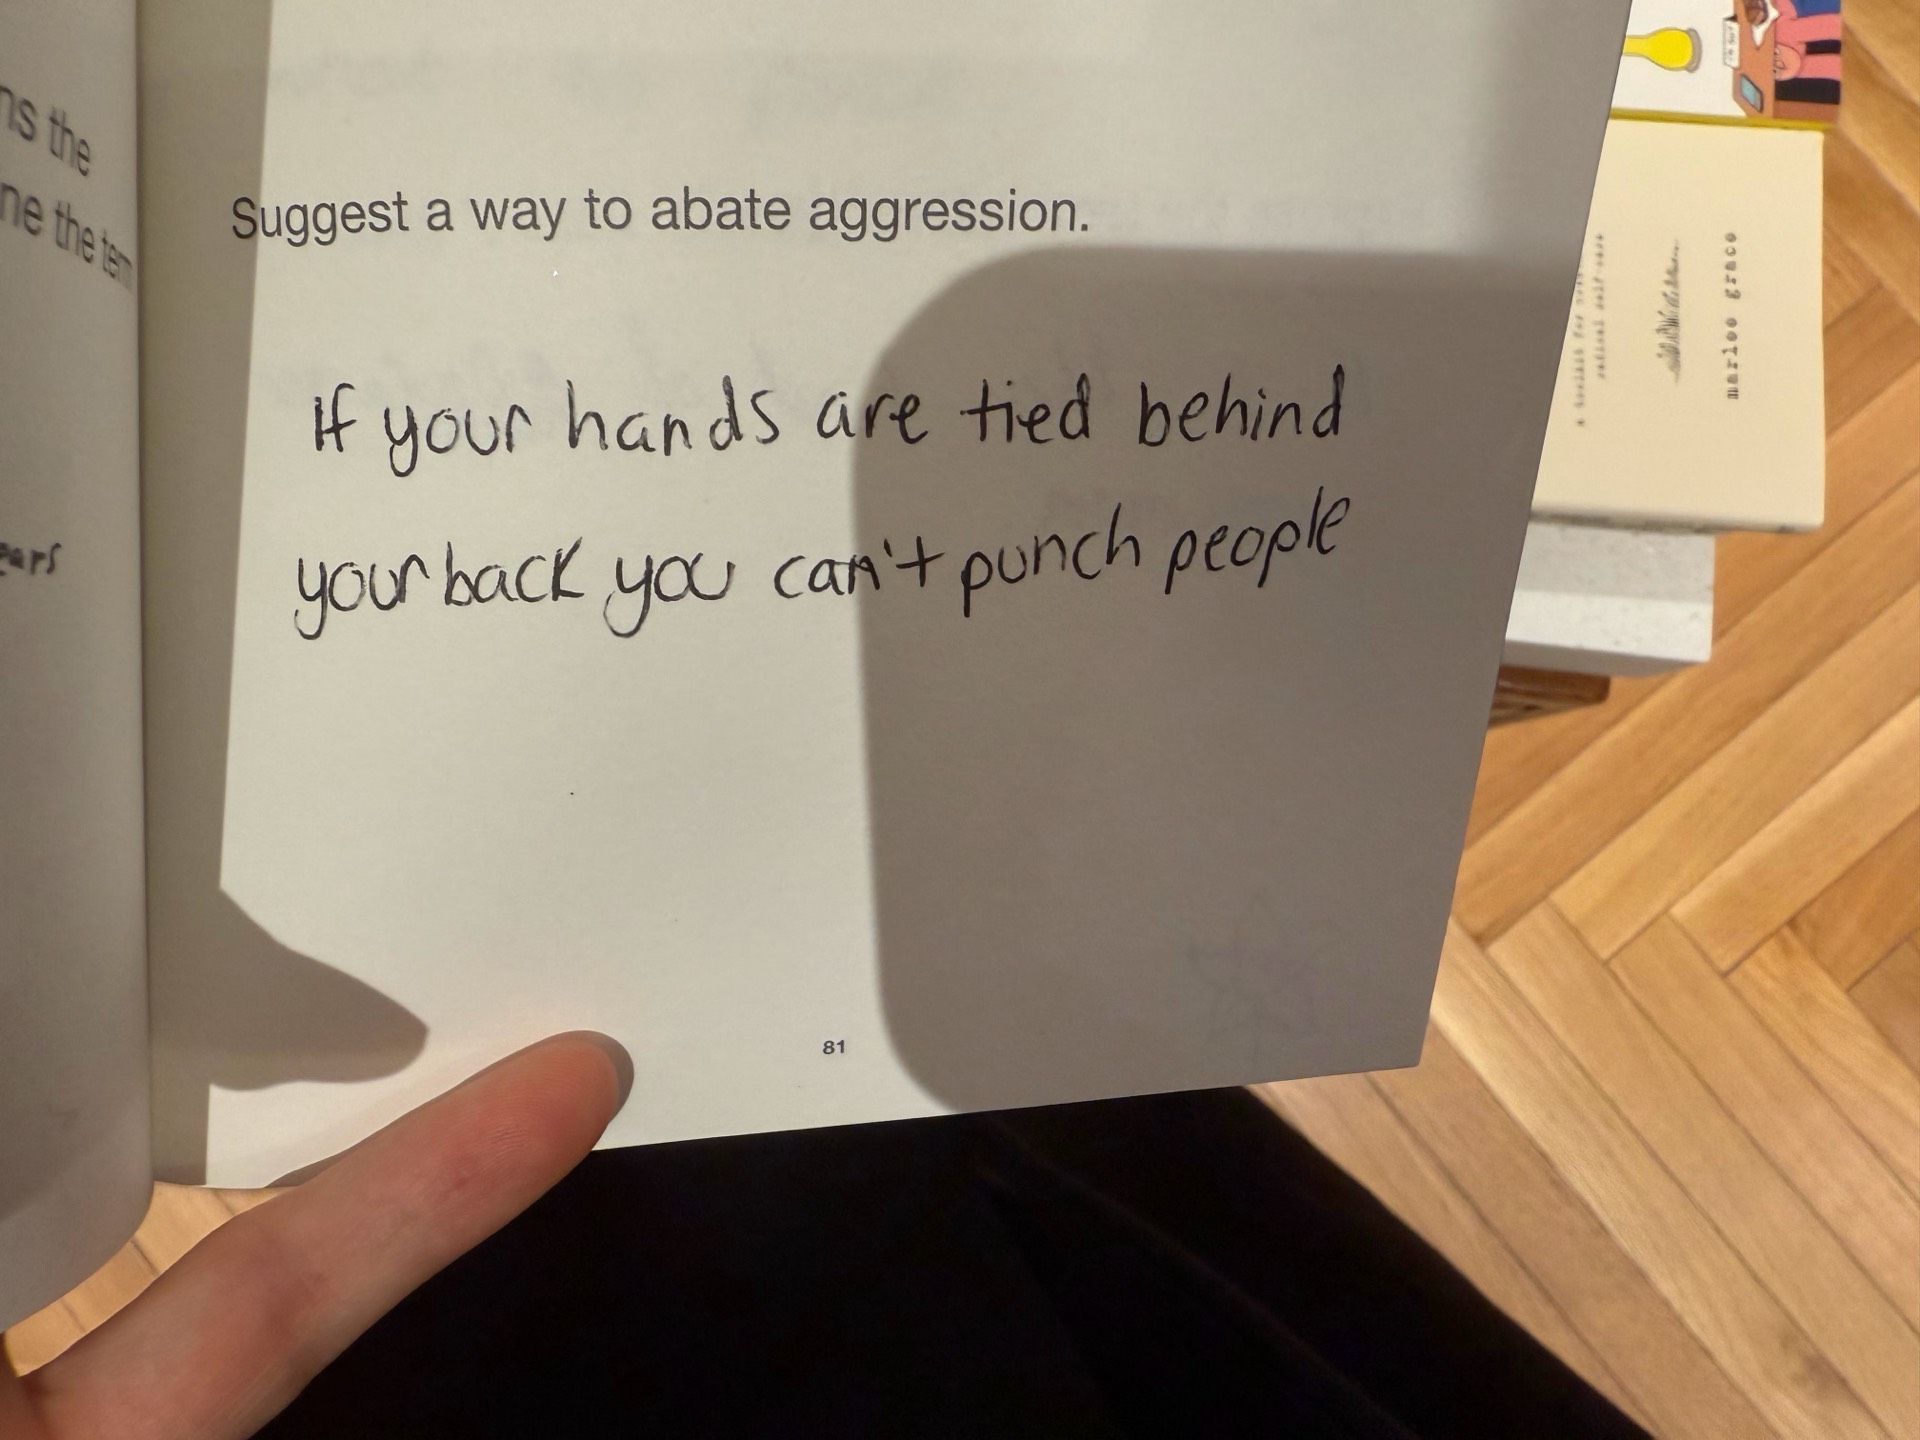 ns the
ne the term
ears
Suggest a way to abate aggression.
If your hands are tied behind
your back you can't punch people
81
radical self-care
marlee grace